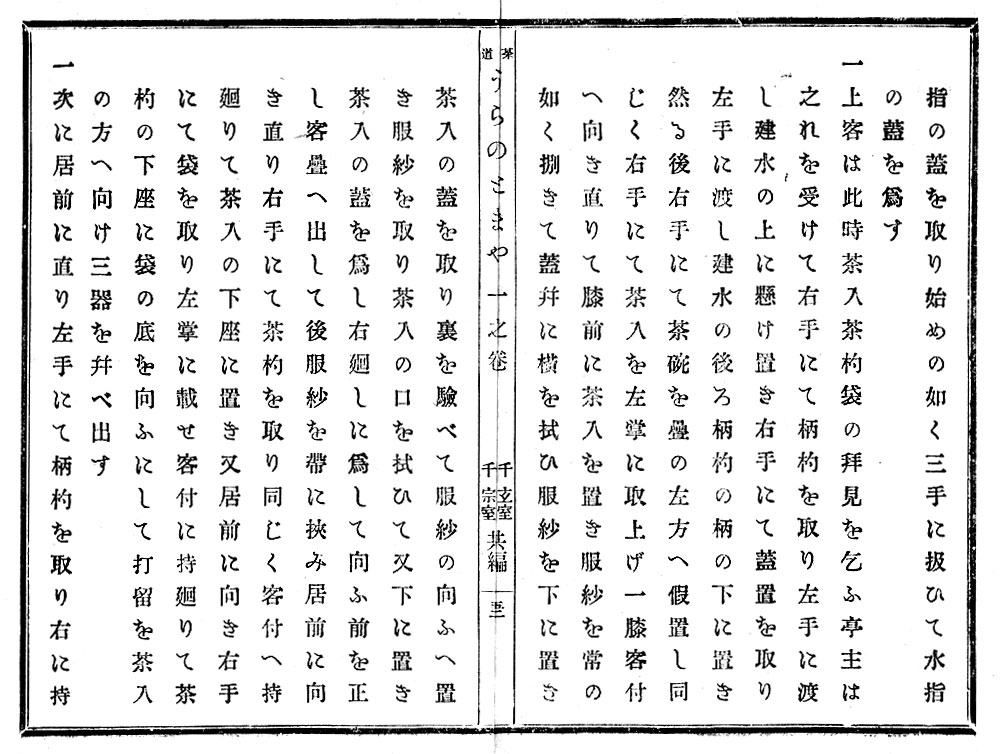 指の蓋を取り始めの如く三手に扱ひて水指
の蓋を爲す
一上客は此時茶入茶杓袋の拜見を乞ふ亭主は
之れを受けて右手にて柄杓を取り左手に渡
し建水の上に懸け置き右手にて蓋置を取り
左手に渡し建水の後ろ柄杓の柄の下に置き
然る後右手にて茶碗を疊の左方へ假置し同
じく右手にて茶入を左掌に取上げ一膝客付
へ向き直りて膝前に茶入を置き服紗を常の
如く捌きて蓋幷に橫を拭ひ服紗を下に置き
茶道うらのとまや 一之卷 千玄室 千宗室 共編 五三
茶入の蓋を取り裏を驗べて服紗の向ふへ置
き服紗を取り茶入の口を拭ひて又下に置き
茶入の蓋を爲し右廻しに爲して向ふ前を正
し客疊へ出して後服紗を帶に挾み居前に向
き直り右手にて茶杓を取り同じく客付へ持
廻りて茶入の下座に置き又居前に向き右手
にて袋を取り左掌に載せ客付に持廻りて茶
杓の下座に袋の底を向ふにして打留を茶入
の方へ向け三器を幷べ出す
一次に居前に直り左手にて柄杓を取り右に持